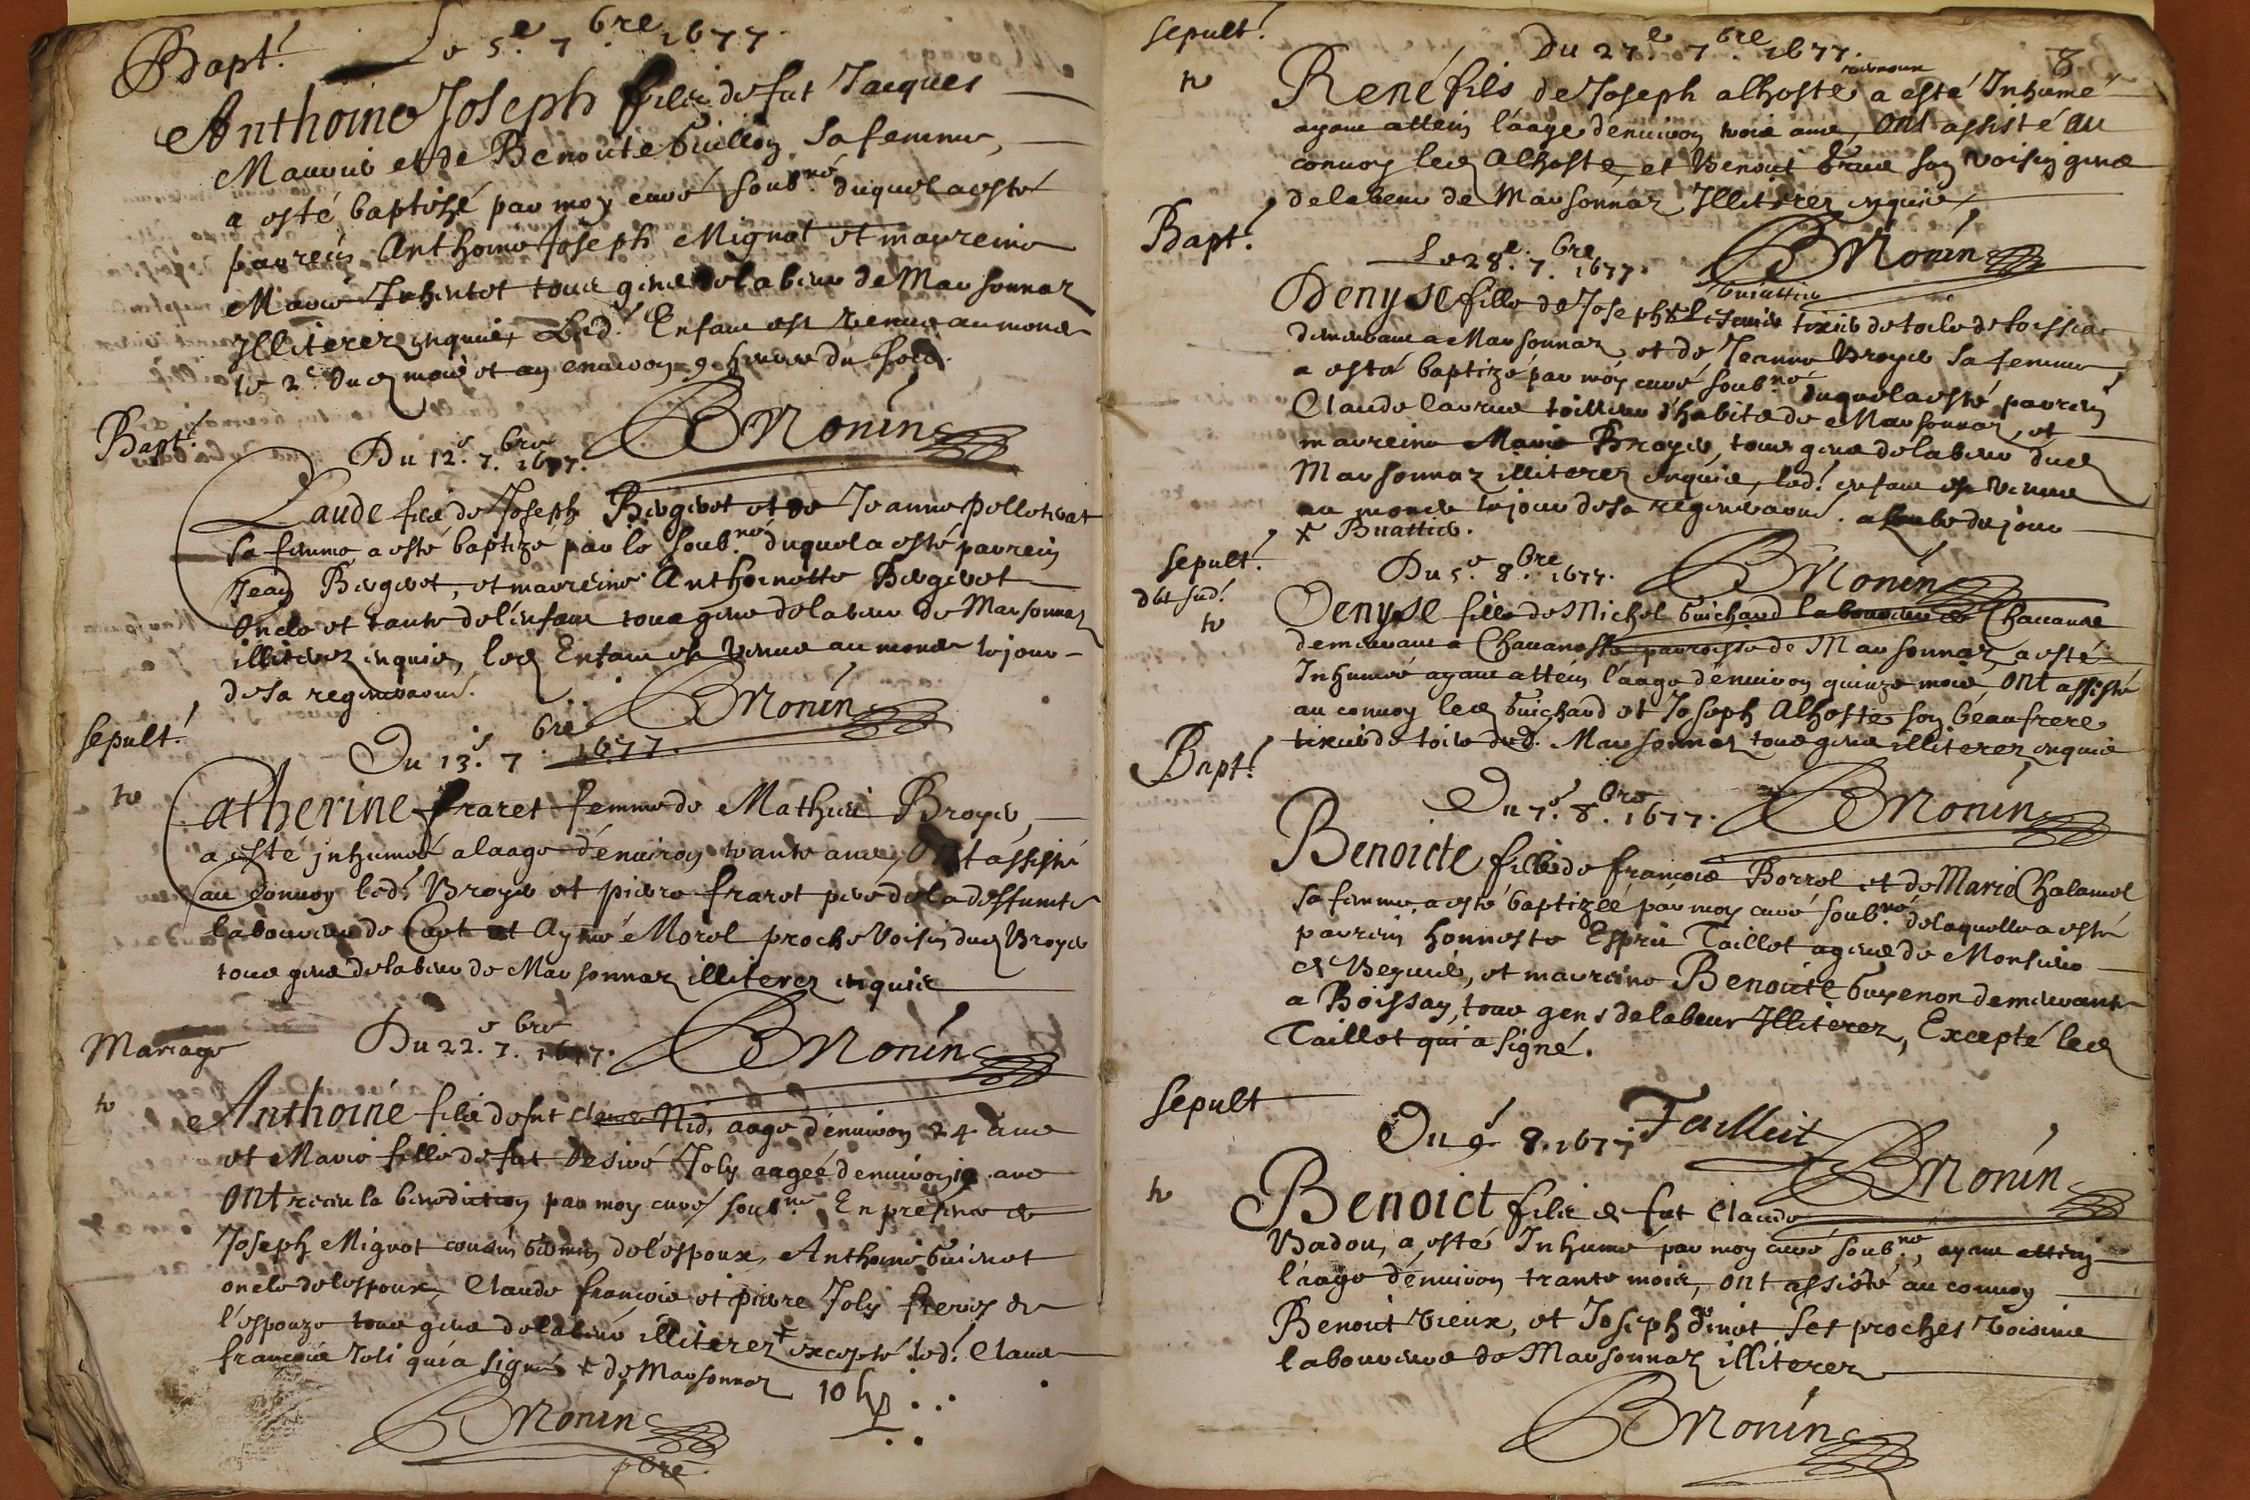 Bapt.
Le 5.e 7.bre 1677.
Anthoine Joseph filz de fut Jacques
et de Benoite Guillon sa femme,
a esté baptisé par moy curé soub.né duquel a esté
parrein Anthoine Joseph Mignot et marreine
Marie tous gens de labeur de Marsonnaz
Illiterez enquis, Led. Enfant est venu au monde
le 2.e du mois et an environ 9 heures du soir.
BMonin
Bapt.
Du 12.e 7.bre 1677.
Claude filz de Joseph Bergerot et de Jeanne
sa femme a esté baptizé par le soub.né duquel a esté parrein
Jean Bergerot, et marreine Anthoinette Bergerot
oncle et tante de l'enfant tous gens de labeur de Marsonnaz
illiterez enquis, led Enfant est venu au monde le jour
de sa regeneraon.
BMonin
sepult.
Du 13.e 7.bre 1677.
Catherine fraret femme de Mathieu Broyer,
a esté inhumée a laage d'environ trante ans, Ont assisté
au convoy led. Broyer et pierre fraret pere de la deffunte
laboureur de Curt et Aymé Morel proche voisin dud Broyer
tous gens de labeur de Marsonnaz illiterez enquis
BMonin
Mariage
Du 22.e 7.bre 1677.
Anthoine filz de fut Claude Nid, aagé d'environ 24 ans
et Marie fille de fut Desiré Joly aagée d'environ ans
Ont receu la benediction par moy curé soub.né En presence de
Joseph Mignot cousin germain de l'espoux, Anthoine Guienot
oncle de l'espoux, Claude françois et pierre Joly freres de
l'espouze tous gens de labeur illiterez + excepté led. Claude
françois Joli qui a signé + de Marsonnaz
BMonin
pbre
sepult.
Du 27.e 7.bre 1677.
8
René filz de Joseph alhoste a esté Inhumé
ayant attein l'aage d'environ trois ans, Ont assisté au
convoy led Alhoste, et Benoit son voisin gens
de labeur de Marsonnaz Illiterez enquis
BMonin
Bapt.
Le 28.e 7.bre 1677.
Denyse fille de Joseph tixier de toile
demeurant a Marsonnaz, et de Jeanne Broyer sa femme,
a esté baptizé par moy curé soub.né duquel a esté parrein
Claude d'habite de Marsonnaz, et
marreine Marie Broyer, tous gens de labeur dud
Marsonnaz illiterez enquis, led. enfant est venu
au monde le jour de sa regeneraon. a l'aube du jour
+ Buattier.
BMonin
sepult.
Du 5.e 8.bre 1677.
Denyse fille de Michel Guichard laboureur de Chavanne
demeurant a Chavanosse parroisse de Marsonnaz a esté
Inhumée ayant attein l'aage d'environ quinze mois, ont assisté
au convoy led Guichard et Joseph Alhoste son beaufrere
tixier de toile dud. Marsonnaz tous gens illiterez enquis
BMonin
Bapt.
Du 7.e 8.bre 1677.
Benoicte fille de françois Borrel et de Marie Chalamel
sa femme a esté baptizée par moy curé soub.né de laquelle a esté
parrein honneste Esprit Taillet agent de Monsieur
et marreine Benoite Guyenon demeurant
a Boissay, tous gens de labeur Illiterez, Excepté led
Taillet qui a signé.
Tailleit
BMonin
sepult
Du 9.e 8. 1677
Benoict filz de fut Claude
Badou, a esté Inhumé par moy curé soub.né, ayant attein
l'aage d'environ trante mois, ont assisté au convoy
Benoit Vieux, et Joseph ses proches voisins
laboureurs de Marsonnaz illiterez
BMonin